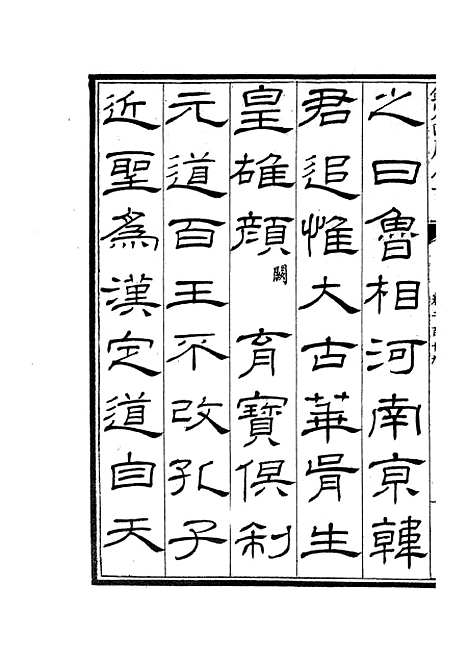 之曰魯相河南京韓
君追惟大古華胥生
皇雄顏闕育寶俱制
元道百王不改孔子
近聖為漢定道自天